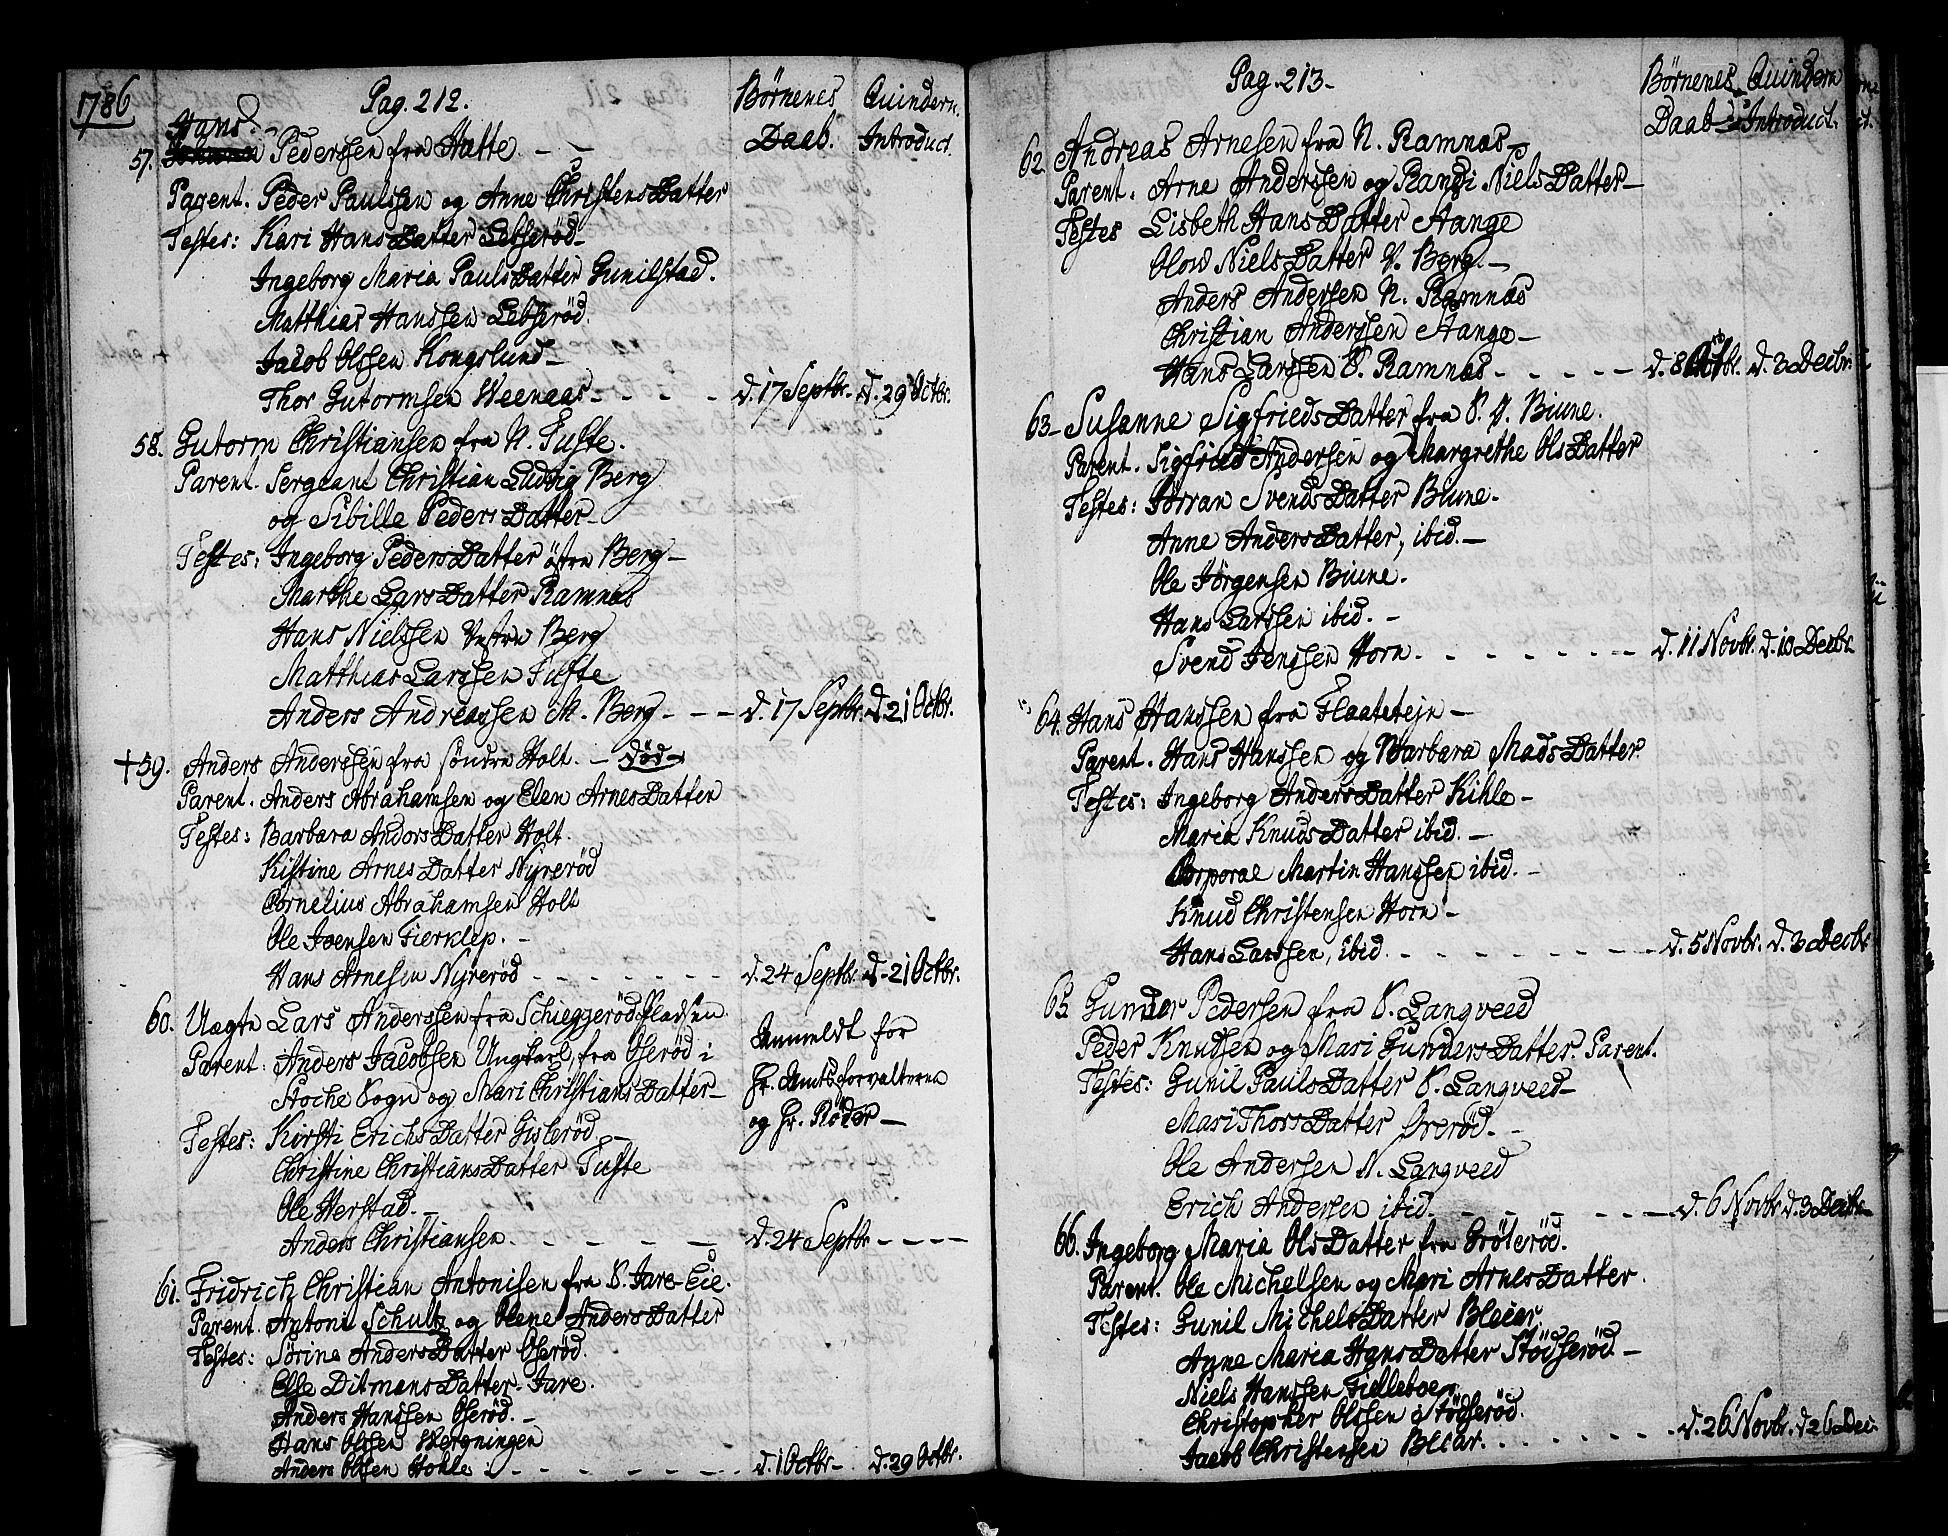 1786
Pag. 212.
Børnenes Daab.
Quindern. Introduct.
Hans
57. Pedersen fra Hatte.
Parent. Peder Paulssen og Anne ChristensDatter
Testes: Kari HansDatter Lebserød
Ingeborg Maria PaulsDatter Gunilstad.
Matthias Hanssen Lebserød.
Jacob Olssen Kongslund
Thor Gutormsen Weenaas - - - - d. 17 Septbr. d. 29 Octbr.
58. Gutorm Christiansen fra N. Tufte.
Parent. Sergeant Christian Ludvig Berg
og Sibille PedersDatter
Testes: Ingeborg PedersDatter østre Berg
Marthe LarsDatter Ramnas
Hans Nielssen Vestre Berg
Matthias Larssen Tufte
Anders Andreassen M. Berg - - - d. 17 Septbr. d. 21 Octbr.
+ 59. Anders Anderssen fra søndre Holt. - død
Parent. Anders Abrahamsen og Elen ArnesDatter
Testes: Barbara AndorsDatter Holt.
Kistine ArnesDatter Nyrerød
Cornelius Abrahamsen Holt
Ole Joensen Fierklep. -
Hans Arnesen Nyrerød - - - - - - - d. 24 Septbr. d. 21 Octbr.
60. Uægte Lars Anderssen fra Schieggerød Pladsen
Parent. Anders Jacobsen Ungkarl fra Oserød i
Stoche Sogn og Mari ChristiansDatter
Testes: Kirsti ErichsDatter Gislerød
Christine ChristiansDatter Tufte
Ole Herstad. -
Anders Christiansen. - - - - - d. 24 Septbr. - - - -
Anmeldt for
Hr. Amtsforvalteren
og Hr. Røder
61. Fridrich Christian Antonisen fra S. Jare-Eie.
Parent. Antoni Schultz og Olene AndersDatter
Testes: Sørine AndersDatter Oserød.
Else DitmansDatter Jare.
Anders Hanssen Oserød. -
Hans Olssen Hergningen
Anders Olsen Hohle - - - - - - d. 1 Octbr. d. 29 Octbr.
Pag. 213.
Børnenes Daab
Quindern Introduct.
62. Andreas Arnesen fra N. Ramnas
Parent. Arne Anderssen og Randi NielsDatter
Testes Lisbeth HansDatter Hange
Olow NielsDatter V. Berg. -
Anders Andersen N. Ramnas
Christian Anderssen Hange
Hans Larssen S. Ramnas - - - - - d. 8 Octbr. d. 3 Decbr.
63. Susanne SigfriedsDatter fra S. V. Biune.
Parent. Sigfried Andersen og Margrethe OlsDatter
Testes: Jörran SvendsDatter Biune.
Anne AndersDatter, ibid. -
Ole Jørgensen Biune.
Hans Larssen ibid. -
Svend Jenssen Horn - - - - - - d. 11 Novbr. d. 10 Decbr.
64. Hans Hanssen fra Flaatetejn
Parent. Hans Hanssen og Barbara MadsDatter
Testes: Ingeborg AndersDatter Kihle
Maria KnudsDatter ibid. -
Corporal Martin Hanssen ibid. -
Knud Christensen Horn -
Hans Larssen, ibid. - - - - - - d. 5 Novbr. d. 3 Decbr.
65. Gunder Pedersen fra S. Langveed
Peder Knudsen og Mari GundersDatter. Parent.
Testes: Gunil PaulsDatter S. Langveed
Mari ThorsDatter Ørerød. -
Ole Andersen N. Langveed
Erich Andersen ibid. - - - - - d. 6 Novbr. d. 3 Decbr.
66. Ingeborg Maria OlsDatter fra Grøterød.
Parent. Ole Michelsen og Mari ArnesDatter.
Testes: Gunil MichelsDatter Bleear
Anne Maria HansDatter Stødserød
Niels Hanssen Fielleboer
Christopher Olssen Stødserød.
Jacob Christensen Bleear. - - - - - d. 26 Novbr. d. 26 Dec.